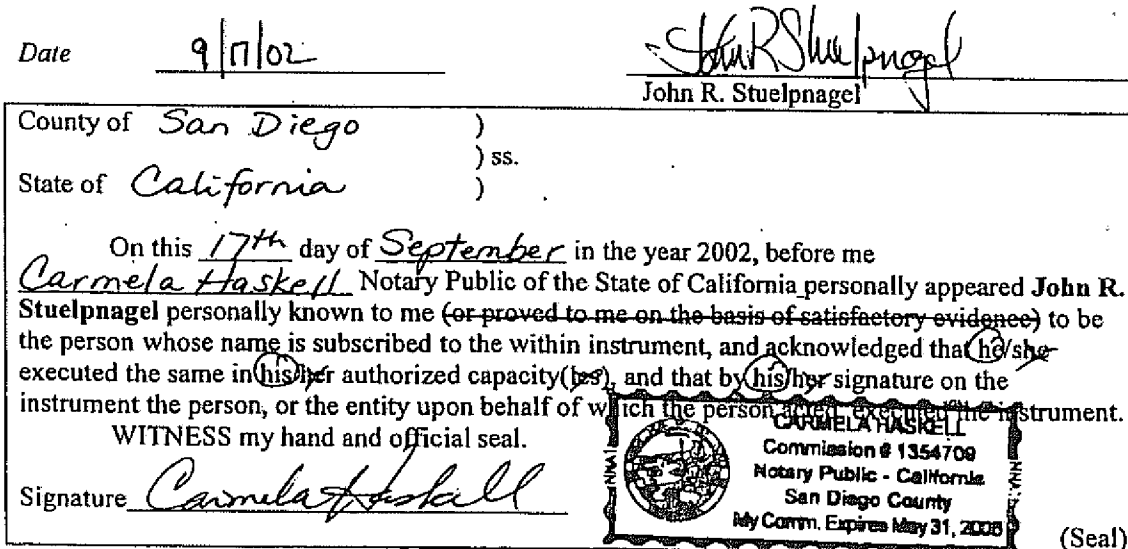 Date 9/17/02 John R Stuelpnagel
John R. Stuelpnagel
County of San Diego )
) ss.
State of California )
On this 17th day of September in the year 2002, before me
Carmela Haskell Notary Public of the State of California personally appeared John R.
Stuelpnagel personally known to me (or proved to me on the basis of satisfactory evidence) to be
the person whose name is subscribed to the within instrument, and acknowledged that he/she
executed the same in his/her authorized capacity(ies), and that by his/her signature on the
instrument the person, or the entity upon behalf of which the person acted, executed the instrument.
WITNESS my hand and official seal.
Signature Carmela Haskell
CARMELA HASKELL
Commission # 1354709
Notary Public - California
San Diego County
My Comm. Expires May 31,
NNA
(Seal)